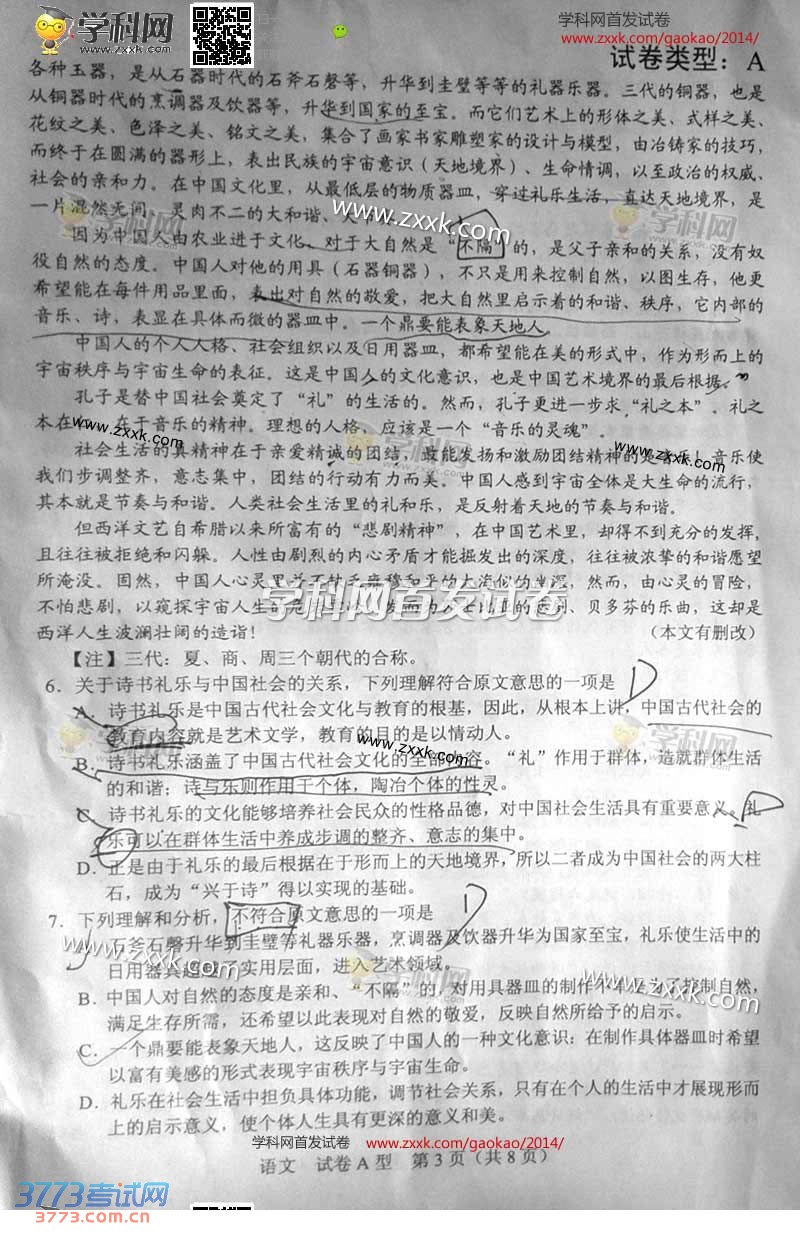 学科网
www.zxxk.com
学科网首发试卷
www.zxxk.com/gaokao/2014/
试卷类型：A
各种玉器，是从石器时代的石斧石磬等，升华到圭璧等等的礼器乐器。三代的铜器，也是
从铜器时代的烹调器及饮器等，升华到国家的至宝。而它们艺术上的形体之美、式样之美、
花纹之美、色泽之美、铭文之美，集合了画家书家雕塑家的设计与模型，由冶铸家的技巧，
而终于在圆满的器形上，表出民族的宇宙意识（天地境界）、生命情调，以至政治的权威、
社会的亲和力。在中国文化里，从最低层的物质器皿，穿过礼乐生活，直达天地境界，是
一片混然无间、灵肉不二的大和谐、
www.zxxk.com
学科网
因为中国人由农业进于文化，对于大自然是“不隔”的，是父子亲和的关系，没有奴
役自然的态度。中国人对他的用具（石器铜器），不只是用来控制自然，以图生存，他更
希望能在每件用品里面，表出对自然的敬爱，把大自然里启示着的和谐、秩序，它内部的
音乐、诗，表显在具体而微的器皿中。一个鼎要能表象天地人。
中国人的个人人格、社会组织以及日用器皿，都希望能在美的形式中，作为形而上的
宇宙秩序与宇宙生命的表征。这是中国人的文化意识，也是中国艺术境界的最后根据。
孔子是替中国社会奠定了“礼”的生活的。然而，孔子更进一步求“礼之本”。礼之
本在 在于音乐的精神。理想的人格，应该是一个“音乐的灵魂”。
www.zxxk.com
学科网
社会生活的真精神在于亲爱精诚的团结，最能发扬和激励团结精神的是音乐！音乐使
www.zxxk.com
我们步调整齐，意志集中，团结的行动有力而美。中国人感到宇宙全体是大生命的流行，
其本就是节奏与和谐。人类社会生活里的礼和乐，是反射着天地的节奏与和谐。
但西洋文艺自希腊以来所富有的“悲剧精神”，在中国艺术里，却得不到充分的发挥，
且往往被拒绝和闪躲。人性由剧烈的内心矛盾才能掘发出的深度，往往被浓挚的和谐愿望
所淹没。固然，中国人心灵里 然而，由心灵的冒险，
学科网首发试卷
不怕悲剧，以窥探宇宙人生的 贝多芬的乐曲，这却是
西洋人生波澜壮阔的造诣！
（本文有删改）
【注】三代：夏、商、周三个朝代的合称。
6．关于诗书礼乐与中国社会的关系，下列理解符合原文意思的一项是
A．诗书礼乐是中国古代社会文化与教育的根基，因此，从根本上讲，中国古代社会的
教育内容就是艺术文学，教育的目的是以情动人。
www.zxxk.com
学科网
B．诗书礼乐涵盖了中国古代社会文化的全部内容。“礼”作用于群体，造就群体生活
的和谐；诗与乐则作用于个体，陶冶个体的性灵。
C．诗书礼乐的文化能够培养社会民众的性格品德，对中国社会生活具有重要意义。礼
乐可以在群体生活中养成步调的整齐、意志的集中。
D．正是由于礼乐的最后根据在于形而上的天地境界，所以二者成为中国社会的两大柱
石，成为“兴于诗”得以实现的基础。
7．下列理解和分析，不符合原文意思的一项是
石斧石磬升华到圭璧等礼器乐器，烹调器及饮器升华为国家至宝，礼乐使生活中的
www.zxxk.com
日用器具超越了实用层面，进入艺术领域。
学科网
B．中国人对自然的态度是亲和、“不隔”的，对用具器皿的制作，不只是为了控制自然，
www.zxxk.com
满足生存所需，还希望以此表现对自然的敬爱，反映自然所给予的启示。
C．一个鼎要能表象天地人，这反映了中国人的一种文化意识：在制作具体器皿时希望
以富有美感的形式表现宇宙秩序与宇宙生命。
D．礼乐在社会生活中担负具体功能，调节社会关系，只有在个人的生活中才展现形而
上的启示意义，使个体人生具有更深的意义和美。
学科网首发试卷
www.zxxk.com/gaokao/2014/
语文 试卷A型 第3页（共8页）
3773考试网
3773.com.cn